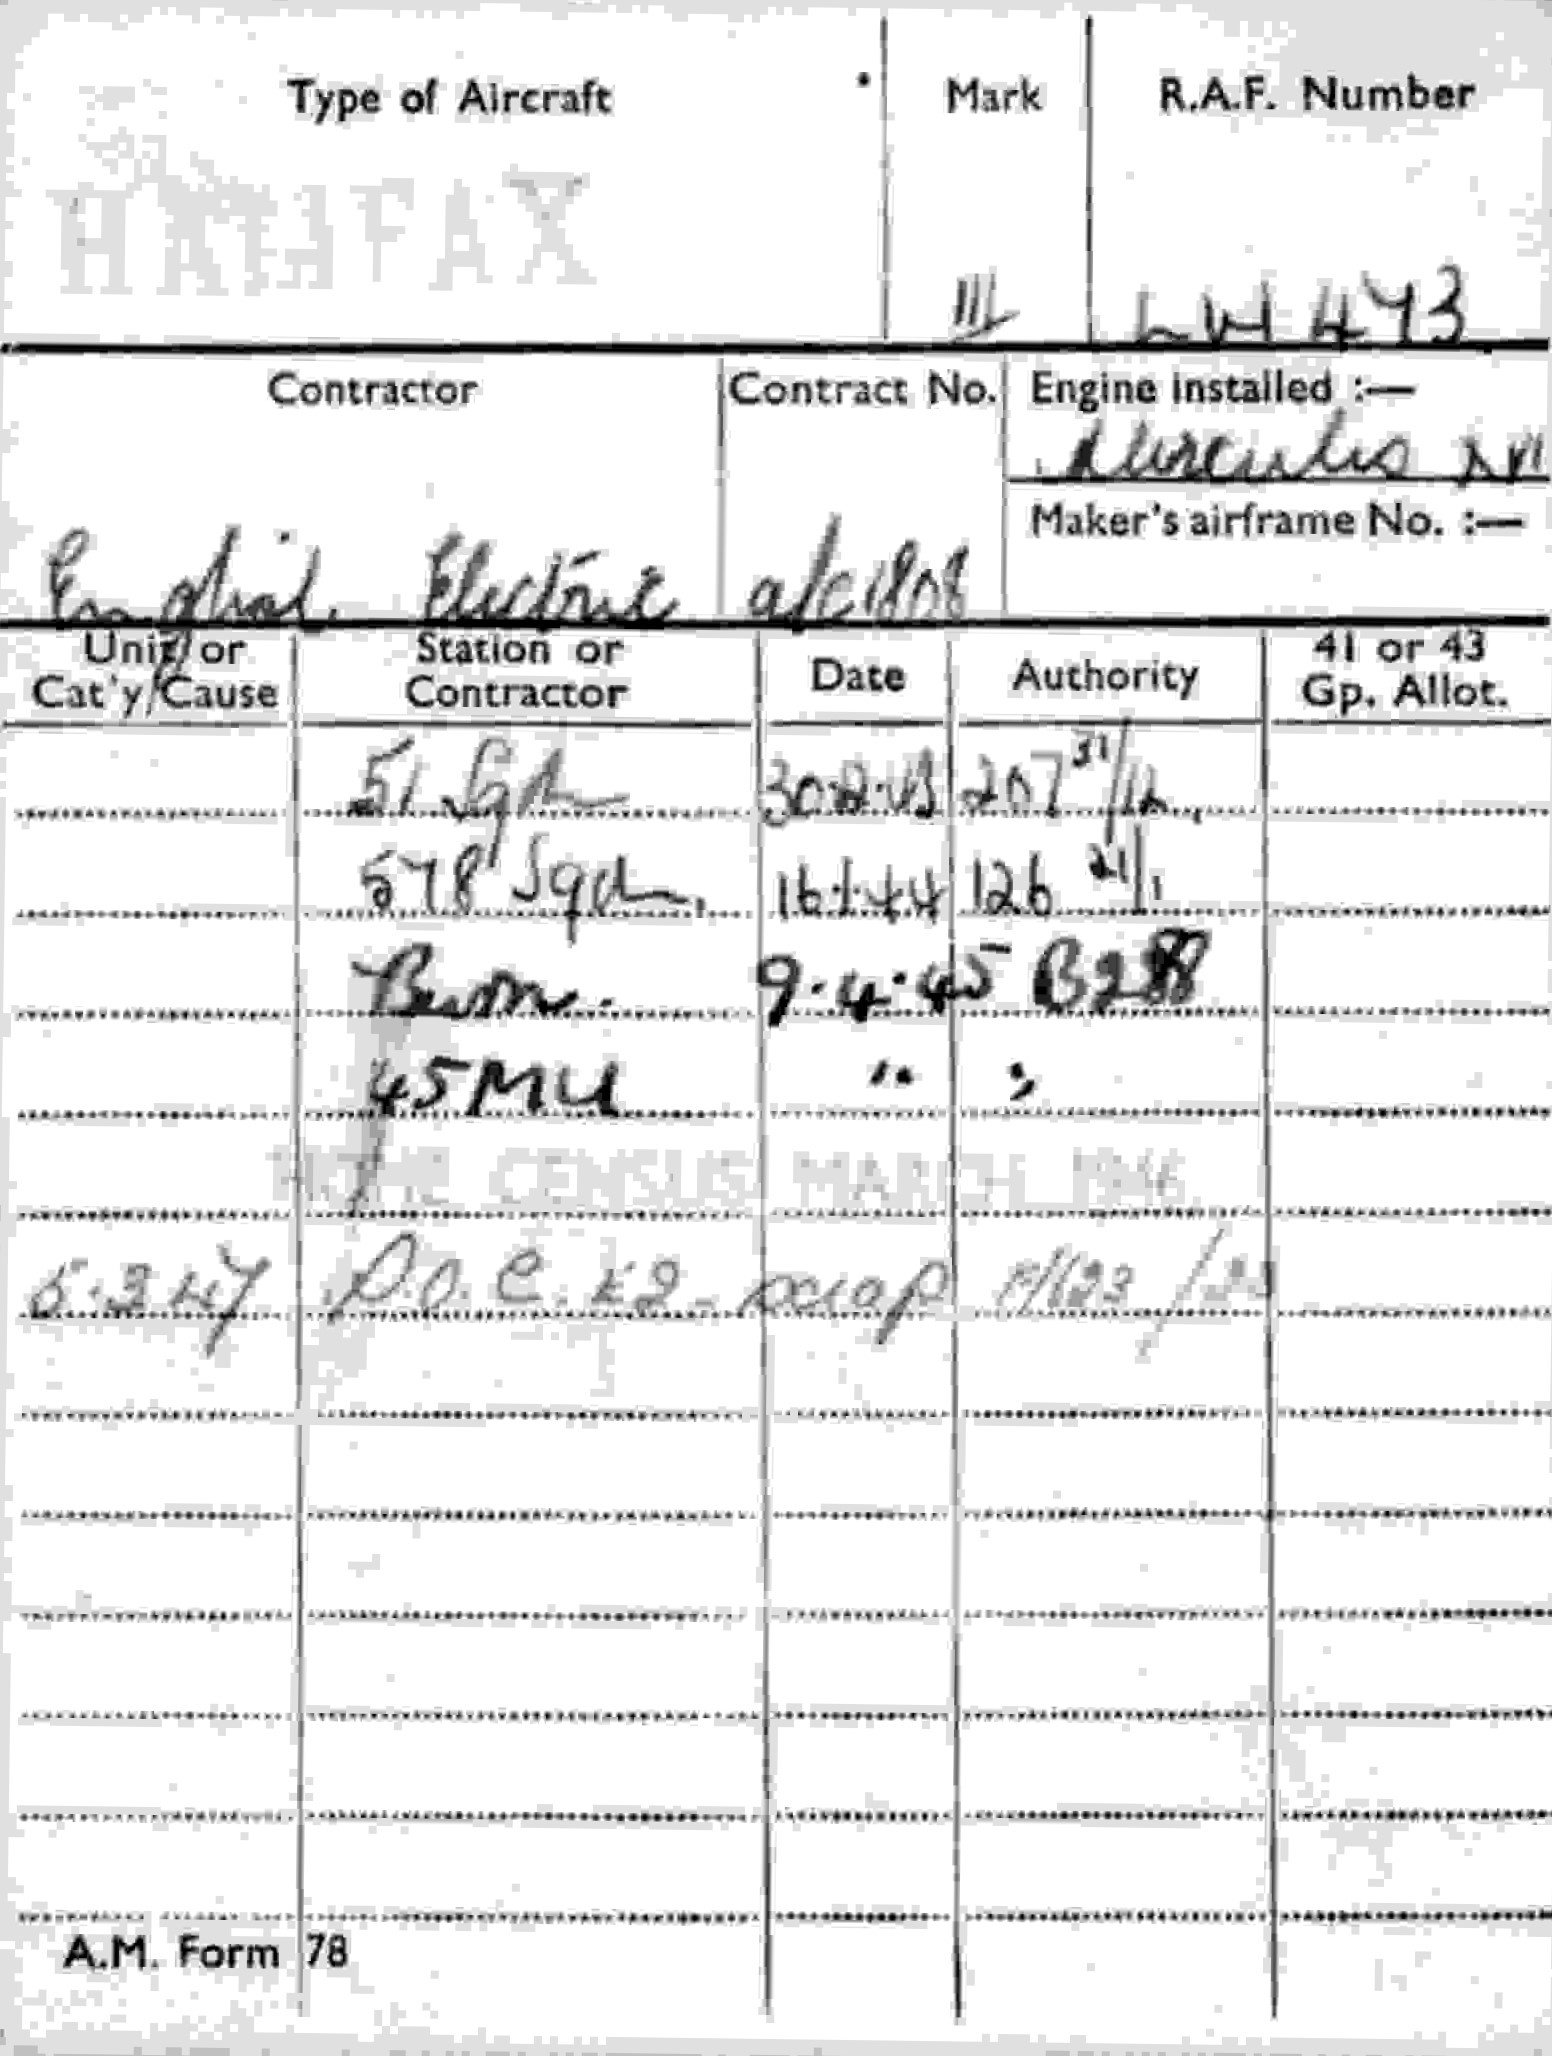 Type of Aircraft Mark R.A.F. Number
HALIFAX III LW 473
Contractor Contract No. Engine installed :—
Hercules XVI
Maker's airframe No. :—
English Electric a/c 1808
Unit or Cat'y/Cause Station or Contractor Date Authority 41 or 43 Gp. Allot.
51 Sqdn 207 31/12
578 Sqdn. 16.1.44 126 21/1
9.4.45 B288
45 MU " "
HOME CENSUS MARCH 1946
5.3.47 scrap
A.M. Form 78